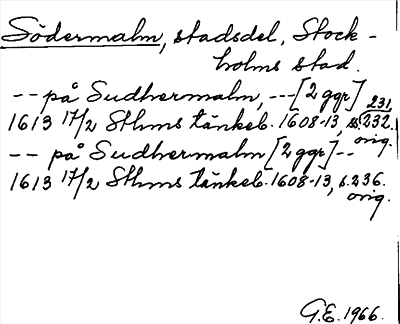 Södermalm, stadsdel, Stock-
holms stad.
-- på Sudhermalm, --- [2 ggr]
1613 17/2 Sthms tänkeb. 1608-13, s. 231, 232. orig.
-- på Sudhermalm [2 ggr] --
1613 17/2 Sthms tänkeb. 1608-13, s. 236. orig.
G.E. 1966.